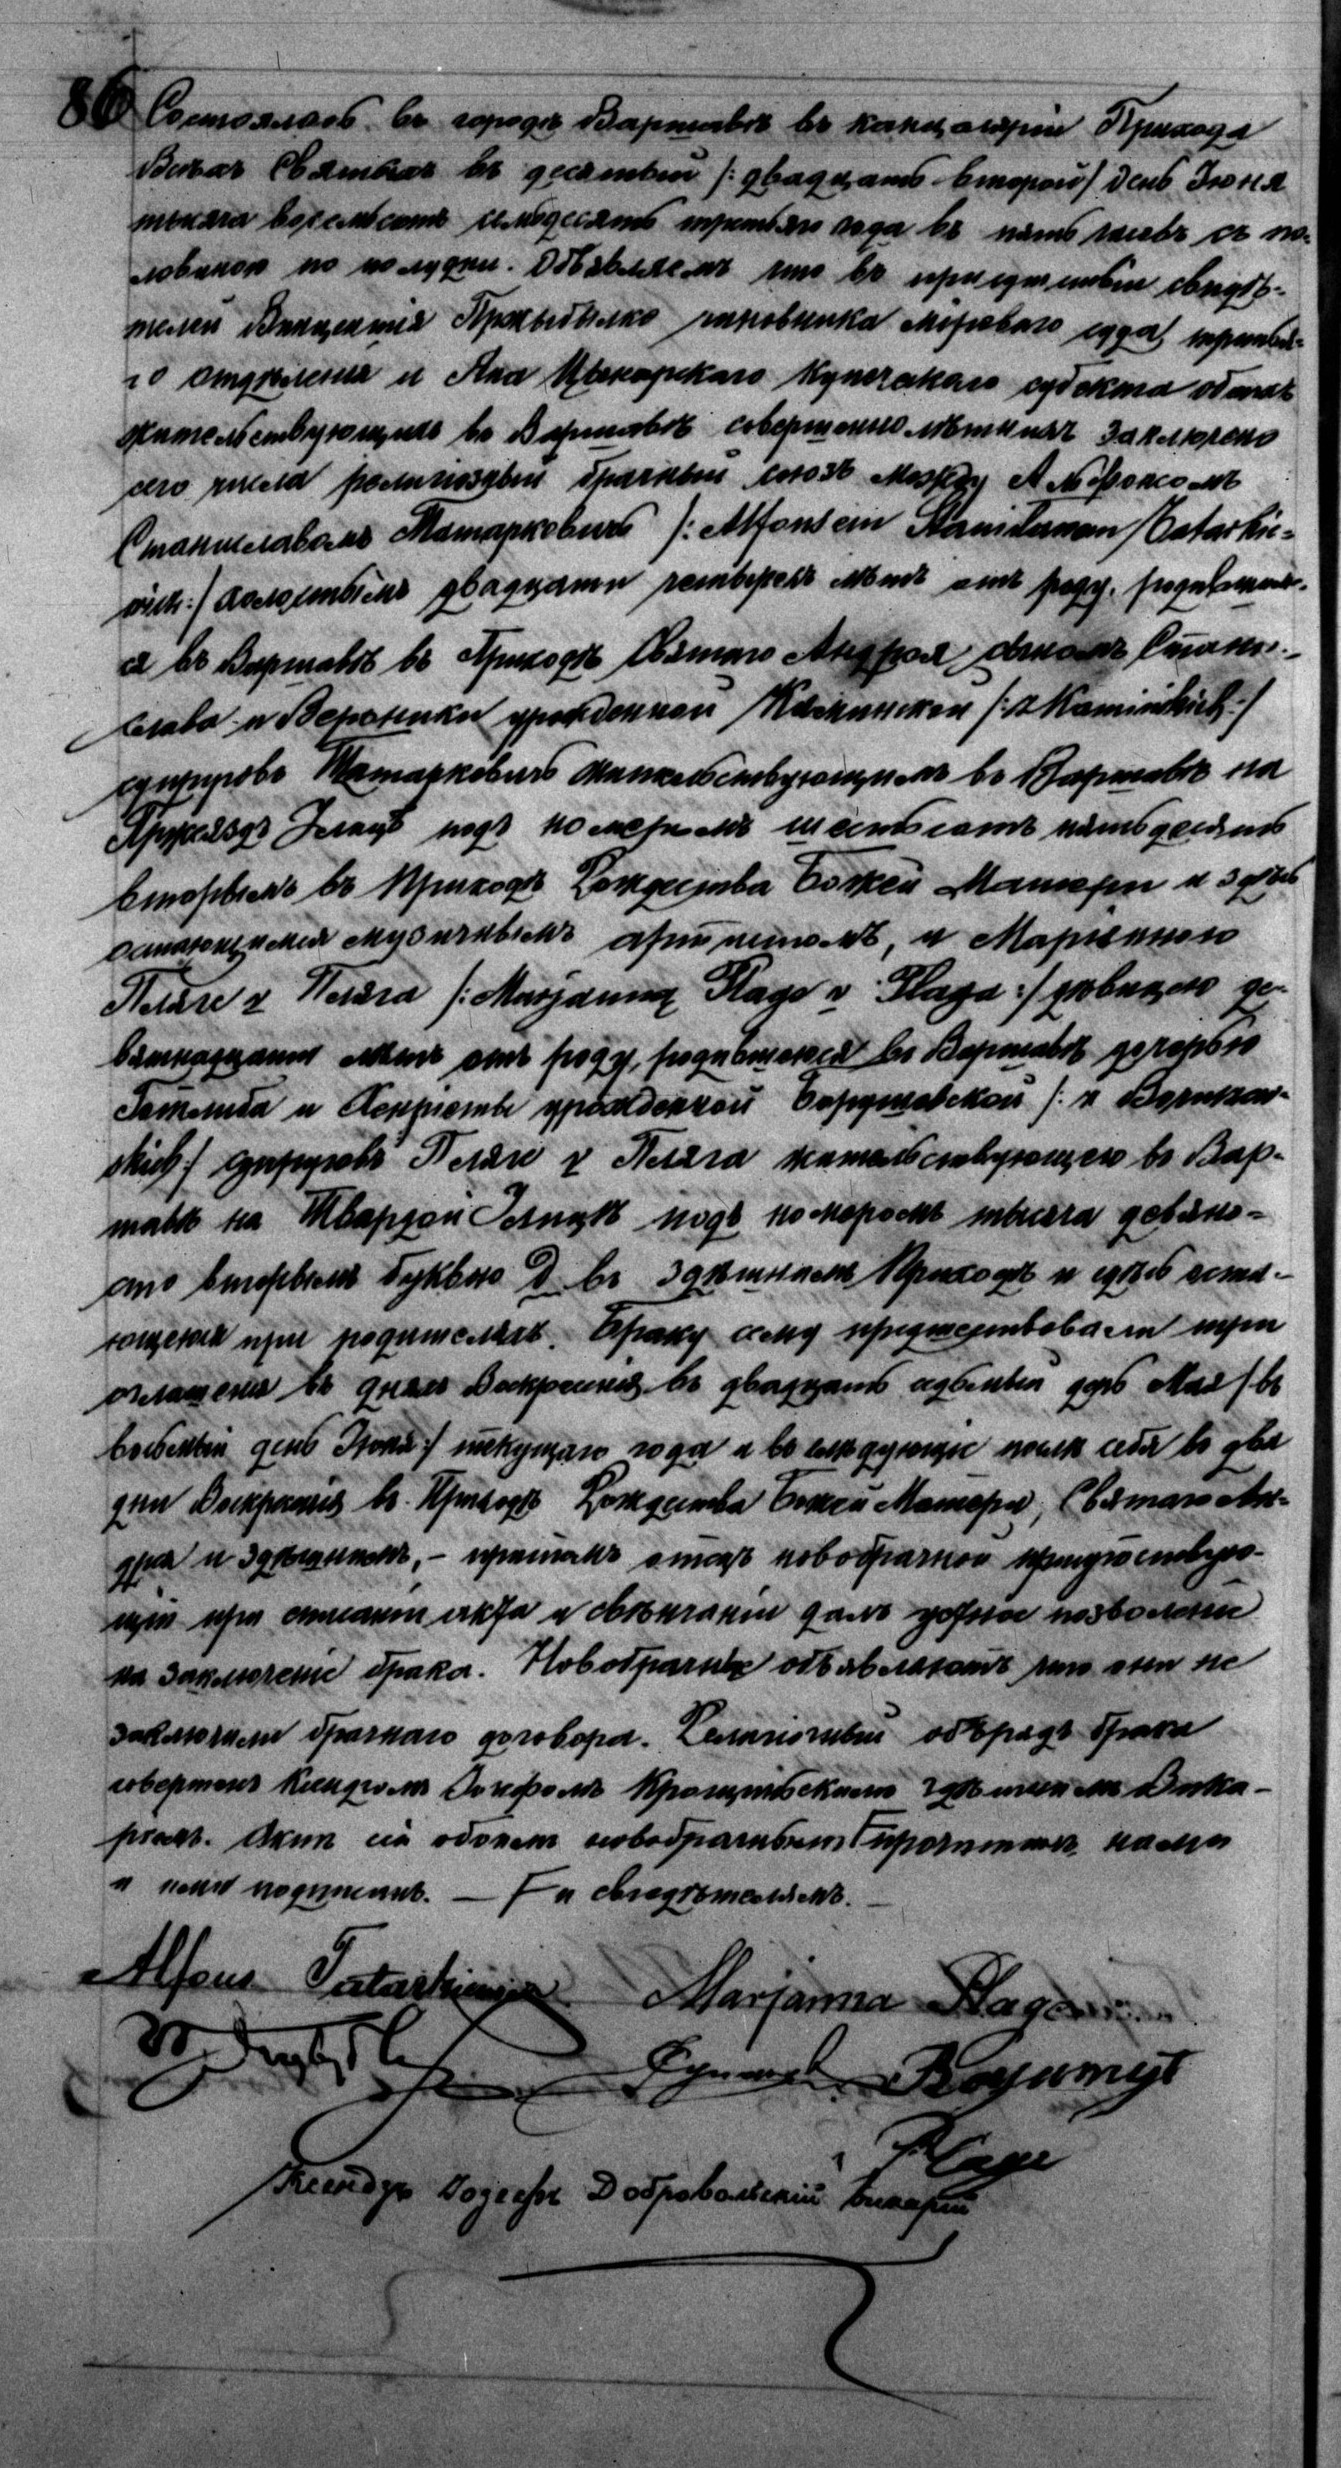 86 Состоялось въ городѣ Варшавѣ въ канцеляріи Прихода
Всѣхъ Святыхъ въ десятый /: двадцать второй / день Іюня
тысяча восемьсотъ семьдесятъ третьяго года въ пять часовъ съ по-
ловиною по полудни. Объявляемъ что въ присутствіи свидѣ-
телей Викентія чиновника Мироваго суда третья-
го отдѣленія и Яна Купеческаго субъекта обоихъ
жительствующихъ въ Варшавѣ совершеннолѣтнихъ заключено
сего числа религіозный брачный союзъ между Альфонсомъ
Станиславомъ Татаркевичъ /: Alfonsem Stanisławem Tatarkie-
wicz :/ холостымъ двадцати четырехъ лѣтъ отъ роду, родившим-
ся въ Варшавѣ въ Приходѣ Святаго Андрея, сыномъ Стани-
слава и Вероники урожденной Каминской /: z Kamińskich :/
супруговъ Татаркевичъ жительствующимъ въ Варшавѣ на
улицѣ подъ номеромъ шестьсотъ пятьдесятъ
вторымъ въ Приходѣ Рождества Божей Матери и здѣсь
музычнымъ артистомъ, и Маріянною
Пляге v Пляга /: Marjanną Plage v Plaga :/ дѣвицею де-
вятнадцати лѣтъ отъ роду, родившеюся въ Варшавѣ дочерью
Готлиба и Генріетты урожденной Борушевской /: z
skich :/ супруговъ Пляге v Пляга жительствующею въ Вар-
шавѣ на Твардой улицѣ подъ номеромъ тысяча девяно-
сто вторымъ буквою D въ здѣшнемъ Приходѣ и здѣсь
при родителяхъ. Браку сему предшествовали три
оглашенія въ дняхъ Воскресенія въ двадцать седьмый день Мая / въ
восьмый день Іюня :/ текущаго года и въ слѣдующіе послѣ сего въ два
дни Воскресенія въ Приходѣ Рождества Божей Матери, Святаго Ан-
дрея и здѣшнемъ, – притомъ отецъ новобрачной присутствую-
щій при списаніи акта и вѣнчаніи далъ устное позволеніе
на заключеніе брака. Новобрачные объявляютъ что они не
заключили брачнаго договора. Религіозный обрядъ брака
совершенъ Ксендзомъ Іосифомъ здѣшнимъ Вика-
ріемъ. Актъ сей обоимъ новобрачнымъ Г прочитанъ, нами
и ними подписанъ. — Г и свидѣтелямъ. —
Alfons Tatarkiewicz Marjanna Plage

Plage
Ксендзъ Іосифъ Добровольскій викарій